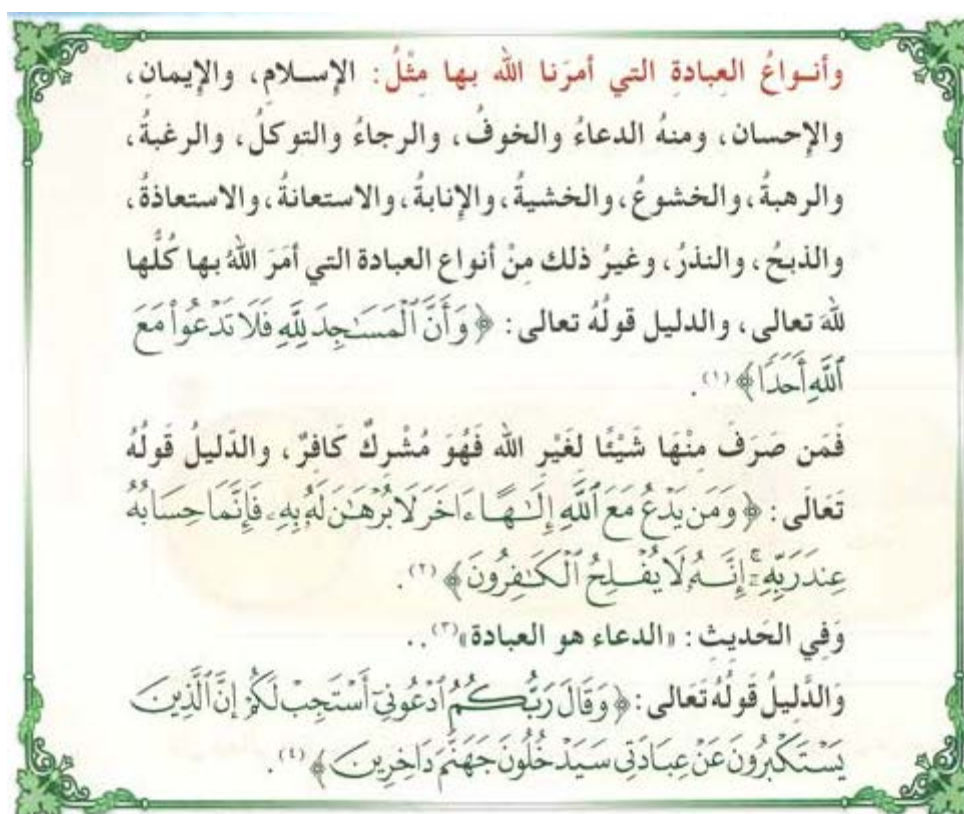 وأنواعُ العبادةِ التي أمرَنا الله بها مثْلُ: الإسلامِ، والإيمانِ،
والإحسان، ومنهُ الدعاءُ والخوفُ، والرجاءُ والتوكلُ، والرغبةُ،
والرهبةُ، والخشوعُ، والخشيةُ، والإنابةُ، والاستعانةُ، والاستعاذةُ،
والذبحُ، والنذرُ، وغيرُ ذلك مِنْ أنواع العبادة التي أمَرَ اللهُ بها كُلُّها
للهَ تعالى، والدليل قولُهُ تعالى: ﴿وَأَنَّ ٱلْمَسَـٰجِدَ لِلَّهِ فَلَا تَدْعُوا۟ مَعَ
ٱللَّهِ أَحَدًا﴾ (١).
فَمَن صَرَفَ مِنْهَا شَيْئًا لغَيْرِ الله فَهُوَ مُشْرِكٌ كَافِرٌ، والدّليلُ قَولُهُ
تَعَالَى: ﴿وَمَن يَدْعُ مَعَ ٱللَّهِ إِلَـٰهًا ءَاخَرَ لَا بُرْهَـٰنَ لَهُۥ بِهِۦ فَإِنَّمَا حِسَابُهُۥ
عِندَ رَبِّهِۦٓ ۚ إِنَّهُۥ لَا يُفْلِحُ ٱلْكَـٰفِرُونَ﴾ (٢).
وَفي الحَديث: «الدعاء هو العبادة»(٣)..
وَالدَّليلُ قَولُهُ تَعَالى: ﴿وَقَالَ رَبُّكُمُ ٱدْعُونِىٓ أَسْتَجِبْ لَكُمْ إِنَّ ٱلَّذِينَ
يَسْتَكْبِرُونَ عَنْ عِبَادَتِى سَيَدْخُلُونَ جَهَنَّمَ دَاخِرِينَ﴾ (٤).